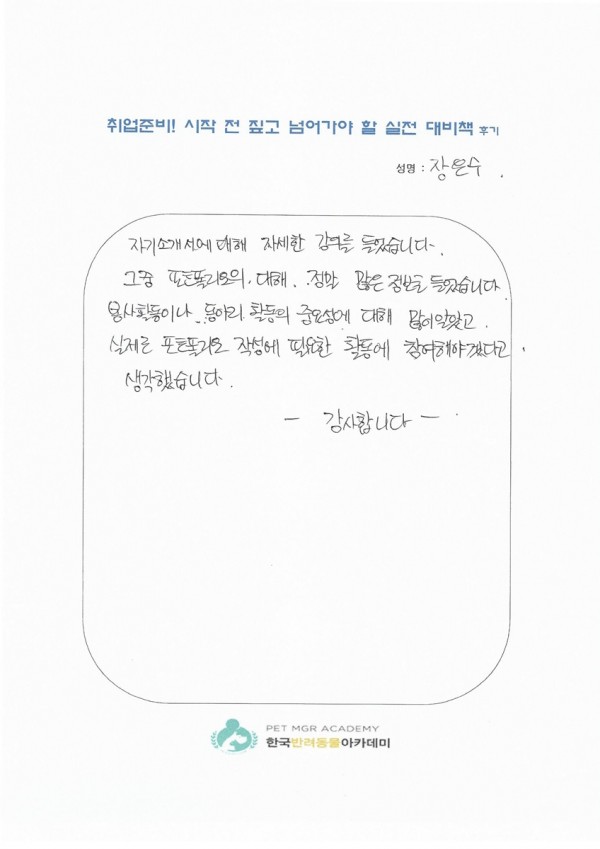 취업준비! 시작 전 짚고 넘어가야 할 실전 대비책 후기
성명 : 장은수 .
자기소개서에 대해 자세한 강의를 들었습니다.
그중 포토폴리오의. 대해. 정말 많은 정보를 들었습니다.
봉사활동이나 동아리 활동의 중요성에 대해 많이알았고.
실제로 포토폴리오 작성에 필요한 활동에 참여해야겠다고.
생각했습니다.
- 감사합니다 -
PET MGR ACADEMY
한국반려동물아카데미